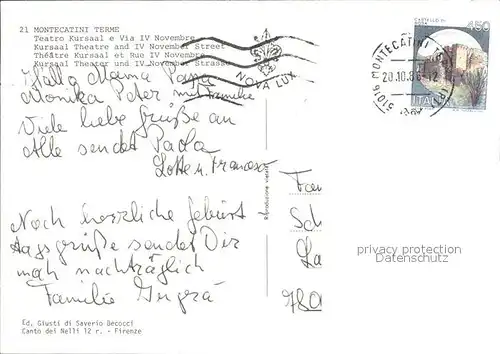 21 MONTECATINI TERME
Teatro Kursaal e Via IV Novembre
Kursaal Theatre and IV November Street
Théâtre Kursaal et Rue IV Novembre
Kursaal Theater und IV November Strasse
NOVA LUX
51016 MONTECATINI TE
20.10.8
CASTELLO DI
450
ITALIA
Hallo Mama Papa
Monika Peter mit Familie
Viele liebe Grüße an
Alle sendet Paola
Lotte u. Francesco
Noch herzliche Geburt
stagsgrüße sendet Dir
nachträglich
Familie
Riproduzione vietata
Fam
Sch
La
780
privacy protection
Datenschutz
Ed. Giusti di Saverio Becocci
Canto dei Nelli 12 r. - Firenze